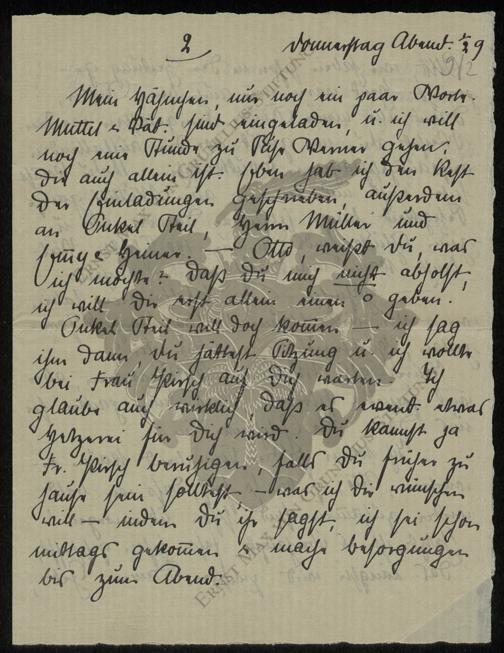 2 Donnerstag Abend. 1/2 9
9/2
Mein Hähnchen, nur noch ein paar Worte.
Muttel u. Vät. sind eingeladen, u. ich will
noch eine Stunde zu Werner gehen.
Die auch allein ist. Eben hab ich den Rest
der Einladungen geschrieben, außerdem
an Onkel Theil, Herrn Müller und
Heiner. — Otto, weißt Du, was
ich möchte? Daß Du mich nicht abholst,
ich will Dir erst allein einen o geben.
Onkel Theil will doch kommen — ich sag
ihm dann, Du hättest Sitzung u. ich wollte
bei Frau Kirsch auf Dich warten. Ich
glaube auch wirklich daß es event. etwas
Hetzerei für Dich wird. Du kannst ja
Fr. Kirsch beruhigen, falls Du früher zu
Hause sein solltest, — was ich Dir wünschen
will — indem Du ihr sagst, ich sei schon
mittags gekommen u. mache Besorgungen
bis zum Abend.